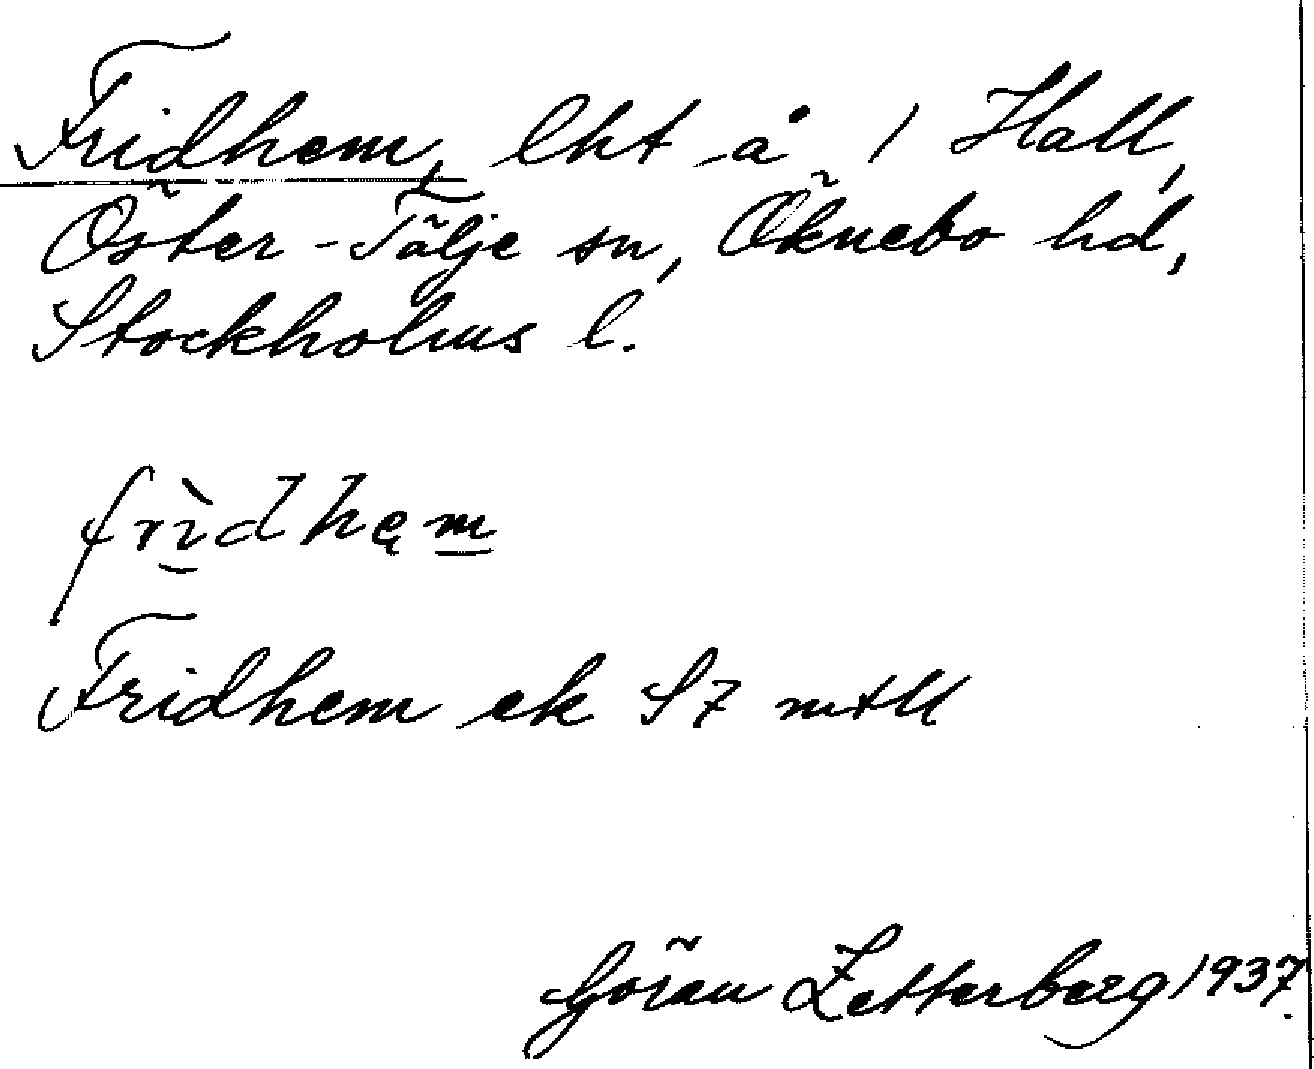 Fridhem, lht å 1 Hall,
Öster-Tälje sn, Öknebo hd,
Stockholms l.
frìdhęm
Fridhem ek S7 mtll
Göran Zetterberg 1937.